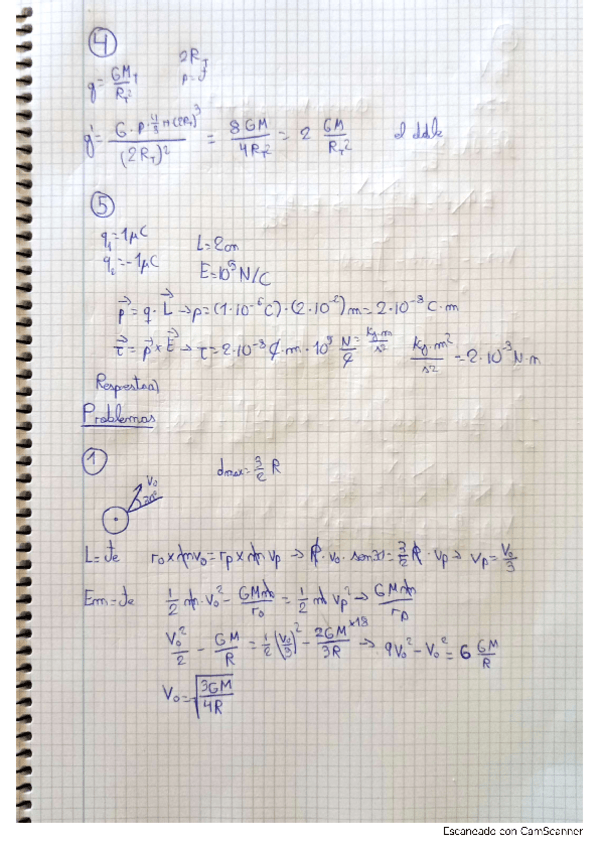 ④
g = GM_T / R_T²   2R_T
ρ = cte
g' = G · ρ · 4/3 π (2R_T)³ / (2R_T)² = 8GM / 4R_T² = 2 GM / R_T²   el doble
⑤
q₁ = 1μC   L = 2cm
q₂ = -1μC   E = 10⁵ N/C
p⃗ = q · L⃗ → p = (1·10⁻⁶C) · (2·10⁻²) m = 2·10⁻⁸ C·m
τ⃗ = p⃗ × E⃗ → τ = 2·10⁻⁸ C·m · 10⁵ N/C = kg·m/s²   kg·m²/s² = 2·10⁻³ N·m
Respuesta a)
Problemas
①
d max = 3/2 R
V₀
30°
L = cte   r₀ × m v₀ = r_p × m v_p → R · v₀ · sen30 = 3/2 R · v_p → v_p = V₀/3
Em = cte   1/2 m · v₀² - GMm/r₀ = 1/2 m v_p² → GMm/r_p
V₀²/2 - GM/R = 1/2 (V₀/3)² - 2GM/3R ×18 → 9V₀² - V₀² = 6 GM/R
V₀ = √(3GM/4R)
Escaneado con CamScanner